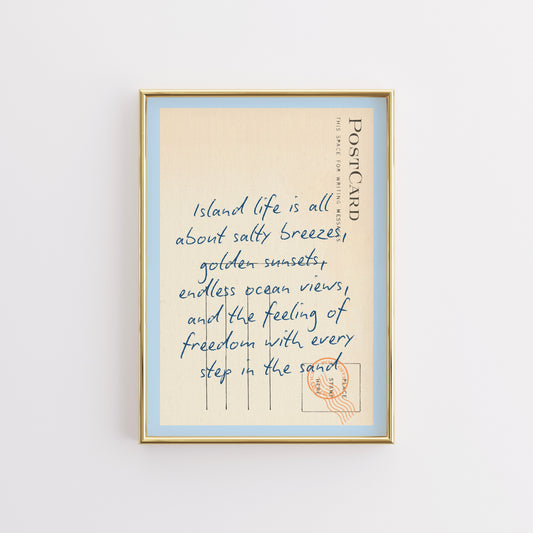 POSTCARD
THIS SPACE FOR WRITING MESSAGES
Island life is all
about salty breezes,
golden sunsets,
endless ocean views,
and the feeling of
freedom with every
step in the sand
PLACE
STAMP
HERE